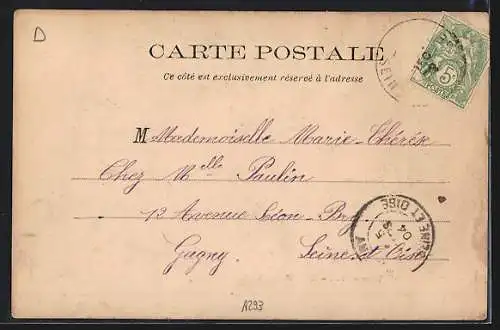 D
CARTE POSTALE
Ce côté est exclusivement réservé à l'adresse
M Mademoiselle Marie-Thérèse
Chez Mlle Paulin
12 Avenue Léon Bry
Gagny. Seine et Oise
SEINE ET OISE
04
A293